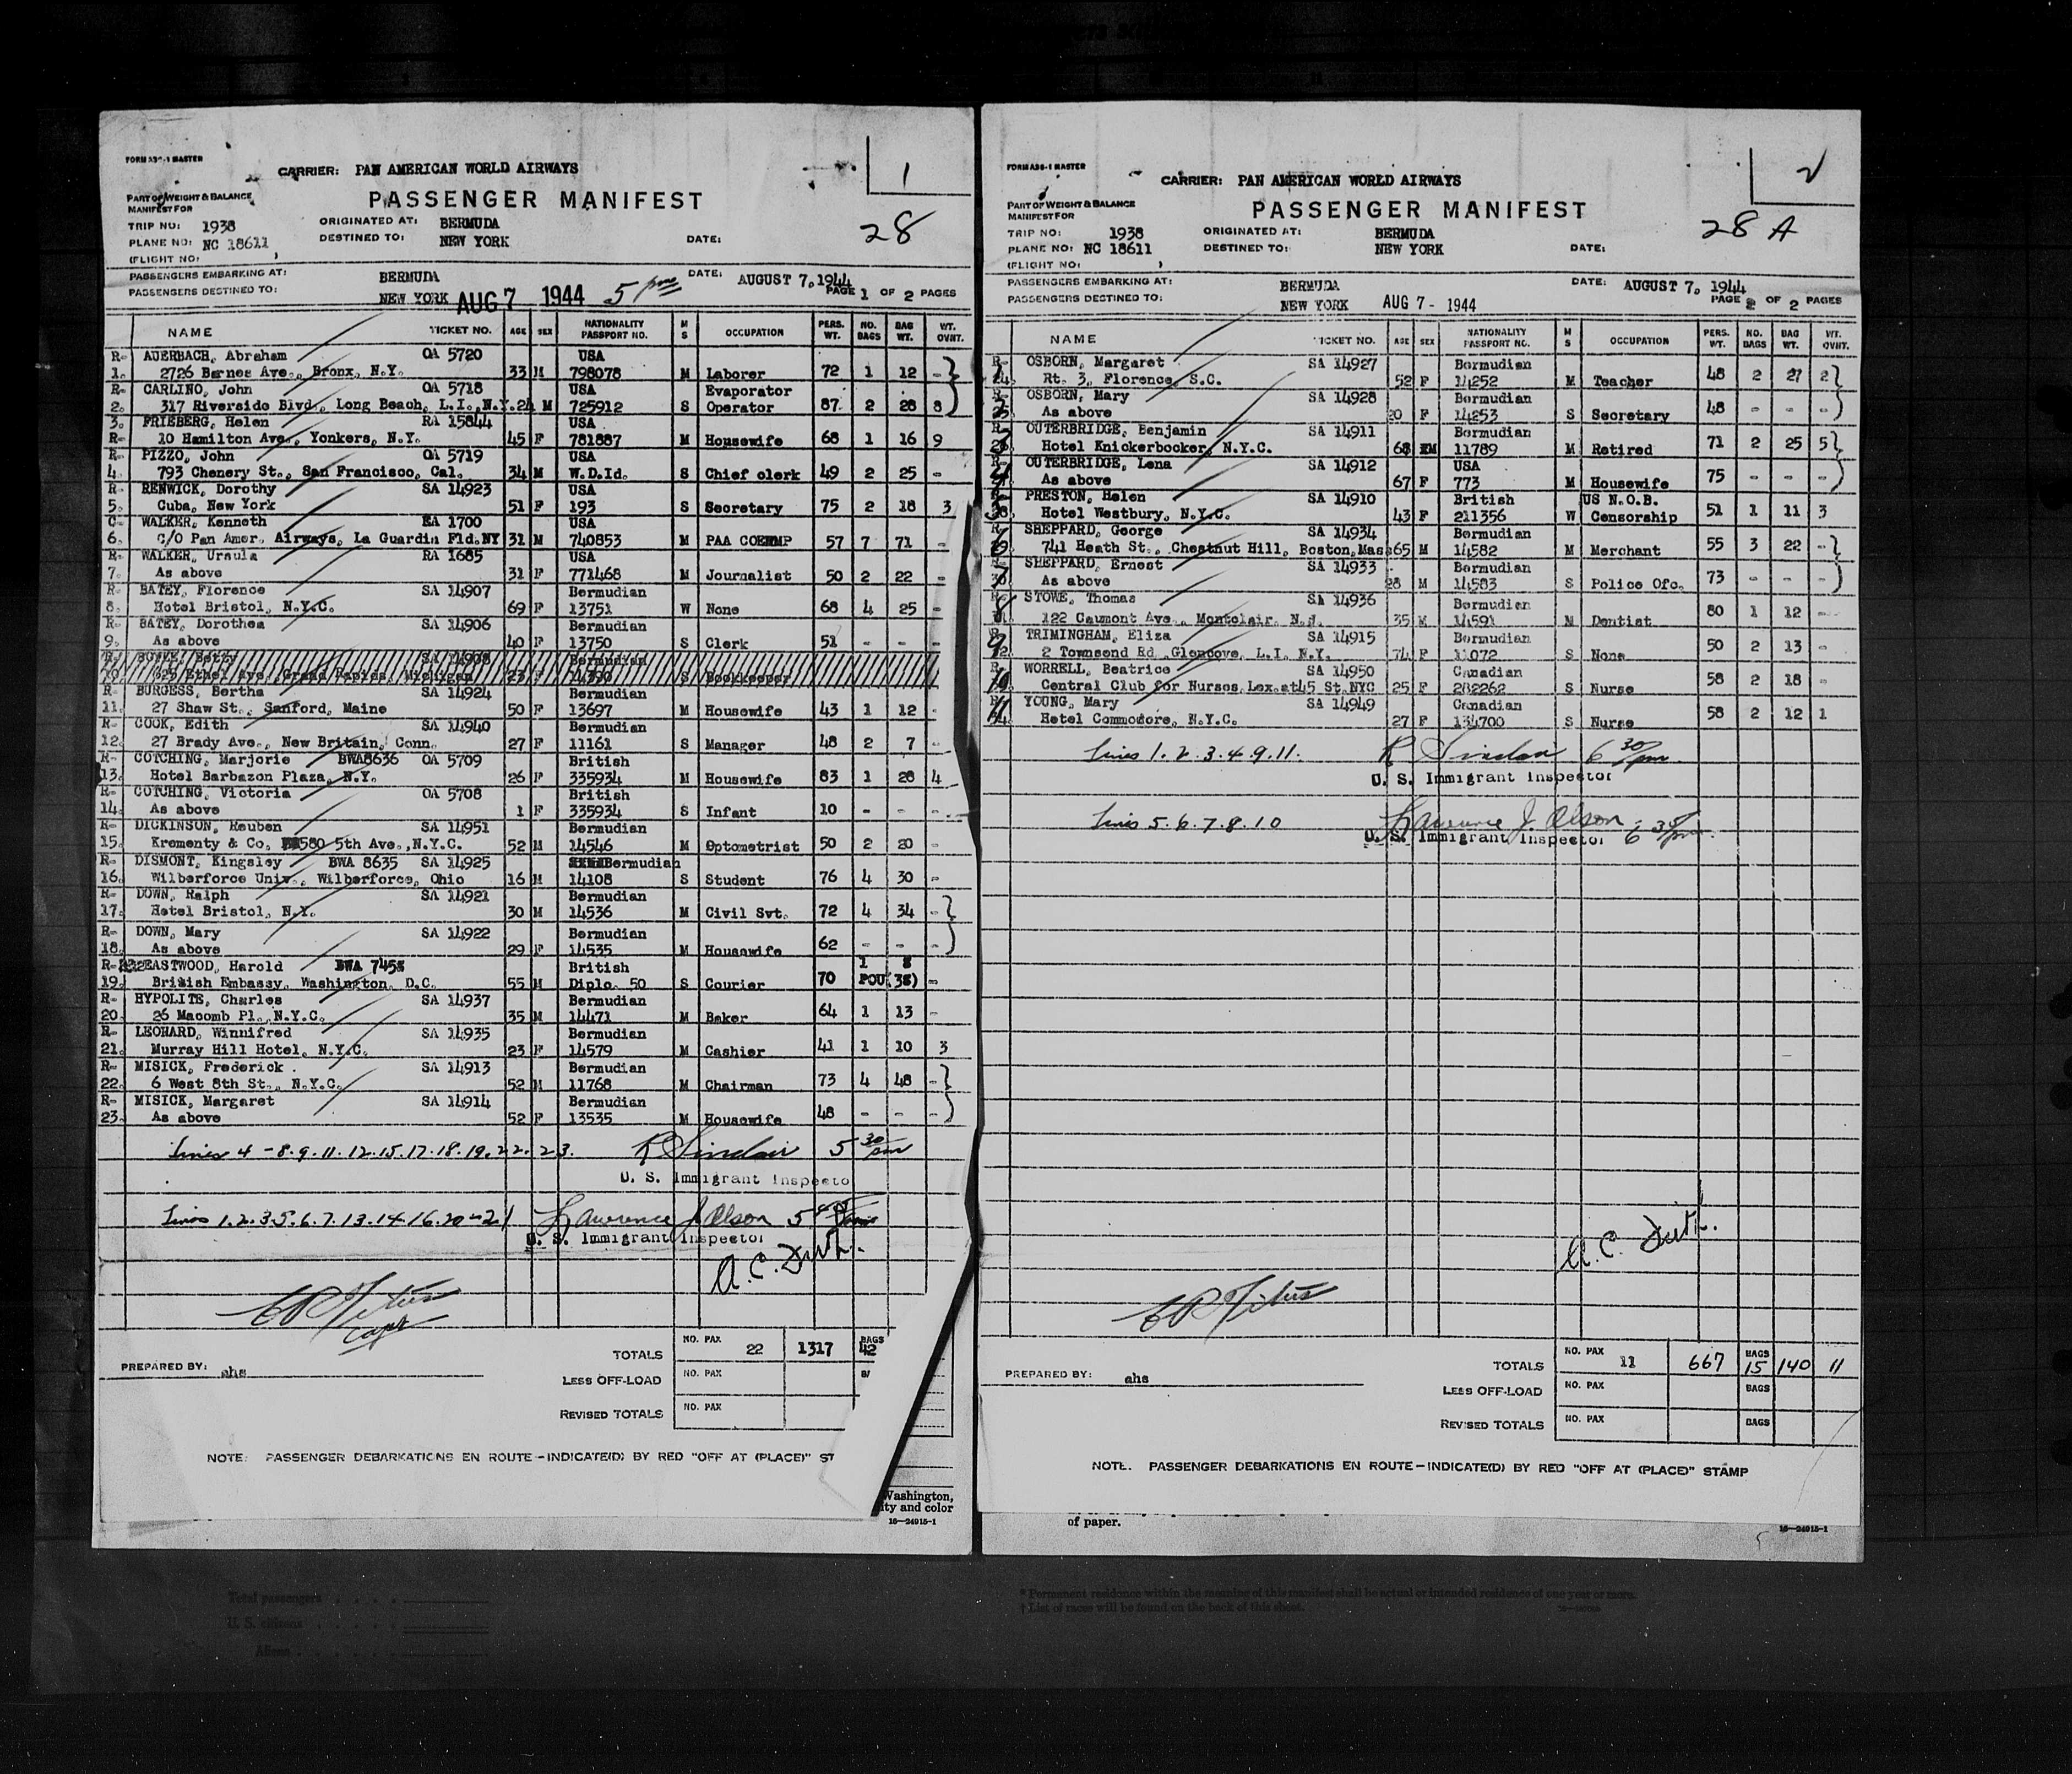 FORM A36-1 MASTER
CARRIER: PAN AMERICAN WORLD AIRWAYS
1
PART OF WEIGHT & BALANCE
MANIFEST FOR
PASSENGER MANIFEST
TRIP NO: 1938 ORIGINATED AT: BERMUDA 28
PLANE NO: NC 18611 DESTINED TO: NEW YORK DATE:
(FLIGHT NO: )
PASSENGERS EMBARKING AT: BERMUDA DATE: AUGUST 7, 1944
PASSENGERS DESTINED TO: NEW YORK AUG 7 1944 5 pm PAGE 1 OF 2 PAGES
NAME TICKET NO. AGE SEX NATIONALITY PASSPORT NO. M S OCCUPATION PERS. WT. NO. BAGS BAG WT. WT. OVHT.
R- AUERBACH, Abraham OA 5720 USA
1. 2726 Barnes Ave., Bronx, N.Y. 33 M 798078 M Laborer 72 1 12 -
R- CARLINO, John OA 5718 USA Evaporator
2. 317 Riverside Blvd., Long Beach, L.I., N.Y. 24 M 725912 S Operator 87 2 28 8
3. FRIEBERG, Helen RA 15844 USA
R- 10 Hamilton Ave., Yonkers, N.Y. 45 F 781887 M Housewife 68 1 16 9
R- PIZZO, John OA 5719 USA
4. 793 Chenery St., San Francisco, Cal. 34 M W.D.Id. S Chief clerk 49 2 25 -
R- RENWICK, Dorothy SA 14923 USA
5. Cuba, New York 51 F 193 S Secretary 75 2 18 3
C- WALKER, Kenneth EA 1700 USA
6. c/o Pan Amer. Airways, La Guardia Fld.NY 31 M 740853 M PAA COEMMP 57 7 71 -
R- WALKER, Ursula RA 1685 USA
7. As above 31 F 771468 M Journalist 50 2 22 -
R- BATEY, Florence SA 14907 Bermudian
8. Hotel Bristol, N.Y.C. 69 F 13751 W None 68 4 25 -
R- BATEY, Dorothea SA 14906 Bermudian
9. As above 40 F 13750 S Clerk 51 - - -
R- Betty SA 14908 Bermudian
10 Ethel Ave., Grand Rapids, Michigan 23 F 14390 S Bookkeeper
R- BURGESS, Bertha SA 14924 Bermudian
11. 27 Shaw St., Sanford, Maine 50 F 13697 M Housewife 43 1 12 -
R- COOK, Edith SA 14940 Bermudian
12. 27 Brady Ave., New Britain, Conn. 27 F 11161 S Manager 48 2 7 -
R- COTCHING, Marjorie BWA8636 OA 5709 British
13. Hotel Barbazon Plaza, N.Y. 26 F 335934 M Housewife 83 1 28 4
R- COTCHING, Victoria OA 5708 British
14. As above 1 F 335934 S Infant 10 - - -
R- DICKINSON, Reuben SA 14951 Bermudian
15. Krementy & Co. 580 5th Ave., N.Y.C. 52 M 14546 M Optometrist 50 2 20 -
R- DISMONT, Kingsley BWA 8635 SA 14925 Bermudian
16. Wilberforce Univ., Wilberforce, Ohio 16 M 14108 S Student 76 4 30 -
R- DOWN, Ralph SA 14921 Bermudian
17. Hotel Bristol, N.Y. 30 M 14536 M Civil Svt. 72 4 34 -
R- DOWN, Mary SA 14922 Bermudian
18. As above 29 F 14535 M Housewife 62 - - -
R- EASTWOOD, Harold BWA 745 British 1 8
19. British Embassy, Washington, D.C. 55 M Diplo. 50 S Courier 70 POU(38) -
R- HYPOLITE, Charles SA 14937 Bermudian
20. 26 Macomb Pl., N.Y.C. 35 M 14471 M Baker 64 1 13 -
R- LEONARD, Winnifred SA 14935 Bermudian
21. Murray Hill Hotel, N.Y.C. 23 F 14579 M Cashier 41 1 10 3
R- MISICK, Frederick SA 14913 Bermudian
22. 6 West 8th St., N.Y.C. 52 M 11768 M Chairman 73 4 48 -
R- MISICK, Margaret SA 14914 Bermudian
23. As above 52 F 13535 M Housewife 48 - - -
Lines 4 - 8. 9. 11. 12. 15. 17. 18. 19. 22. 23. R Sinclair 5 30 pm
U. S. Immigrant Inspecto
Lines 1. 2. 3. 5. 6. 7. 13. 14. 16. 20 - 21 Lawrence J. Olson 5
U. S. Immigrant Inspector
A. C.
Capt
TOTALS NO. PAX 22 1317 BAGS 42
PREPARED BY: ahs
LESS OFF-LOAD NO. PAX
REVISED TOTALS NO. PAX
NOTE: PASSENGER DEBARKATIONS EN ROUTE-INDICATE(D) BY RED "OFF AT (PLACE)" ST
Washington,
ity and color
16-24915-1
FORM A36-1 MASTER
CARRIER: PAN AMERICAN WORLD AIRWAYS
2
PART OF WEIGHT & BALANCE
MANIFEST FOR
PASSENGER MANIFEST
TRIP NO: 1938 ORIGINATED AT: BERMUDA 28 A
PLANE NO: NC 18611 DESTINED TO: NEW YORK DATE:
(FLIGHT NO: )
PASSENGERS EMBARKING AT: BERMUDA DATE: AUGUST 7, 1944
PASSENGERS DESTINED TO: NEW YORK AUG 7 - 1944 PAGE 2 OF 2 PAGES
NAME TICKET NO. AGE SEX NATIONALITY PASSPORT NO. M S OCCUPATION PERS. WT. NO. BAGS BAG WT. WT. OVHT.
R- OSBORN, Margaret SA 14927 Bermudian
1 24. Rt. 3, Florence, S.C. 52 F 14252 M Teacher 48 2 27 2
R- OSBORN, Mary SA 14928 Bermudian
2 25. As above 20 F 14253 S Secretary 48 - - -
R- OUTERBRIDGE, Benjamin SA 14911 Bermudian
3 26. Hotel Knickerbocker, N.Y.C. 68 M 11789 M Retired 71 2 25 5
R- OUTERBRIDGE, Lena SA 14912 USA
4 As above 67 F 773 M Housewife 75 - - -
R- PRESTON, Helen SA 14910 British US N.O.B.
5 28. Hotel Westbury, N.Y.C. 43 F 211356 W Censorship 51 1 11 3
R- SHEPPARD, George SA 14934 Bermudian
6 29. 741 Heath St., Chestnut Hill, Boston, Mass 65 M 14582 M Merchant 55 3 22 -
R- SHEPPARD, Ernest SA 14933 Bermudian
7 30. As above 28 M 14583 S Police Ofc. 73 - - -
R- STOWE, Thomas SA 14936 Bermudian
8 31. 122 Caumont Ave., Montclair, N.J. 35 M 14591 M Dentist 80 1 12 -
R- TRIMINGHAM, Eliza SA 14915 Bermudian
9 32. 2 Townsend Rd, Glencove, L.I. N.Y. 74 F 11072 S None 50 2 13 -
R- WORRELL, Beatrice SA 14950 Canadian
10 Central Club for Nurses, Lex.at45 St.NYC 25 F 282262 S Nurse 58 2 18 -
R- YOUNG, Mary SA 14949 Canadian
11 34. Hotel Commodore, N.Y.C. 27 F 134700 S Nurse 58 2 12 1
Lines 1. 2. 3. 4. 9. 11. R Sinclair 6 30 pm
U. S. Immigrant Inspector
Lines 5. 6. 7. 8. 10 Lawrence J. Olson 6 30 pm
U. S. Immigrant Inspector
A. C.
TOTALS NO. PAX 11 667 BAGS 15 140 11
PREPARED BY: ahs
LESS OFF-LOAD NO. PAX BAGS
REVISED TOTALS NO. PAX BAGS
NOTE. PASSENGER DEBARKATIONS EN ROUTE-INDICATE(D) BY RED "OFF AT (PLACE)" STAMP
of paper.
16-24915-1
Total passengers
U. S. citizens
Aliens
* Permanent residence within the meaning of this manifest shall be actual or intended residence of one year or more.
† List of races will be found on the back of this sheet.